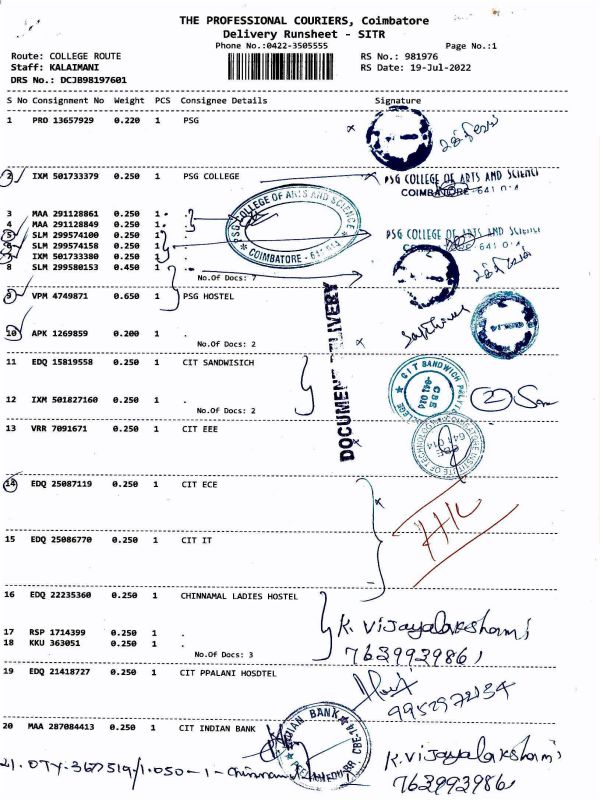 THE PROFESSIONAL COURIERS, Coimbatore
Delivery Runsheet - SITR
Phone No.:0422-3505555
Page No.:1
Route: COLLEGE ROUTE
RS No.: 981976
Staff: KALAIMANI
RS Date: 19-Jul-2022
DRS No.: DCJB98197601
S No Consignment No Weight PCS Consignee Details Signature
1 PRO 13657929 0.220 1 PSG
2 IXM 501733379 0.250 1 PSG COLLEGE
PSG COLLEGE OF ARTS AND SCIENCE
COIMBATORE-641 014
3 MAA 291128861 0.250 1 .
4 MAA 291128849 0.250 1 .
5 SLM 299574100 0.250 1 .
6 SLM 299574158 0.250 1 .
7 IXM 501733380 0.250 1 .
8 SLM 299580153 0.450 1 .
PSG COLLEGE OF ARTS AND SCIENCE
COIMBATORE - 641 014
PSG COLLEGE OF ARTS AND SCIENCE
COIMBATORE-641 014
No.Of Docs: 7
9 VPM 4749871 0.650 1 PSG HOSTEL
10 APK 1269859 0.200 1 .
No.Of Docs: 2
DOCUMENT DELIVERY
11 EDQ 15819558 0.250 1 CIT SANDWISICH
12 IXM 501827160 0.250 1 .
No.Of Docs: 2
CIT SANDWICH
CBE
641 014
2
13 VRR 7091671 0.250 1 CIT EEE
14 EDQ 25087119 0.250 1 CIT ECE
15 EDQ 25086770 0.250 1 CIT IT
16 EDQ 22235360 0.250 1 CHINNAMAL LADIES HOSTEL
17 RSP 1714399 0.250 1 .
18 KKU 363051 0.250 1 .
No.Of Docs: 3
K. Vijayalakshami
7639939861
19 EDQ 21418727 0.250 1 CIT PPALANI HOSDTEL
9952972134
20 MAA 287084413 0.250 1 CIT INDIAN BANK
INDIAN BANK
K.Vijayalakshami
7639939861